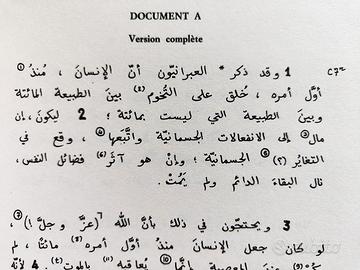 DOCUMENT A
Version complète
1 وقد ذكر * العبرانيّون أنّ الإنسانَ ، مُنذُ (١)
أوّل أمره ، خُلق على التُّخوم (٢) بينَ الطبيعة المائتة
وبينَ الطبيعة التي ليست بمائتة ؛ 2 ليكونَ، إن
مال (٣) إلى الانفعالات الجسمانيّة واتّبعَها ، وقع في
التغايُر (٣) الجسمانيّة ؛ وإنْ هو آثَر (٦) فضائل النفس،
نال البقاءَ الدائم ولم يَمُتْ .
3 ويحتجّون في ذلك بأنَّ الله (عزَّ وجلَّ) ،
لو كان جعل الإنسانَ منذُ أوّل أمره مائتًا ، لم
المعصية يُعاقبه بالموت . 4 لأنّه